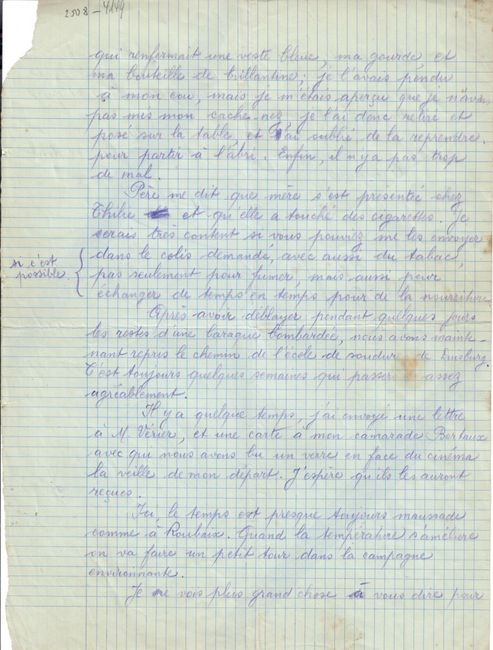 2508 - 4144
qui renfermait une veste bleue, ma gourde et
ma bouteille de brillantine; je l'avais pendu
à mon cou, mais je m'étais aperçu que je n'avais
pas mis mon cache-nez, je l'ai donc retiré et
posé sur la table et j'ai oublié de la reprendre
pour partir à l'abri. Enfin, il n'y a pas trop
de mal.
Père me dit que mère s'est présentée chez
et qu'elle a touché des cigarettes. Je
serais très content si vous pouvez me les envoyer
si c'est possible
dans le colis demandé, avec aussi du tabac,
pas seulement pour fumer, mais aussi pour
échanger de temps en temps pour de la nourriture.
Après avoir déblayer pendant quelques jours
les restes d'une baraque bombardée, nous avons mainte-
nant repris le chemin de l'école de soudure de Duisburg.
C'est toujours quelques semaines qui passent assez
agréablement.
Il y a quelque temps, j'ai envoyé une lettre
à M. Verier, et une carte à mon camarade Bertaux
avec qui nous avons bu un verre en face du cinéma
la veille de mon départ. J'espère qu'ils les auront
reçues.
Ici, le temps est presque toujours maussade
comme à Roubaix. Quand la température s'améliore
on va faire un petit tour dans la campagne
environnante.
Je ne vois plus grand chose à vous dire pour